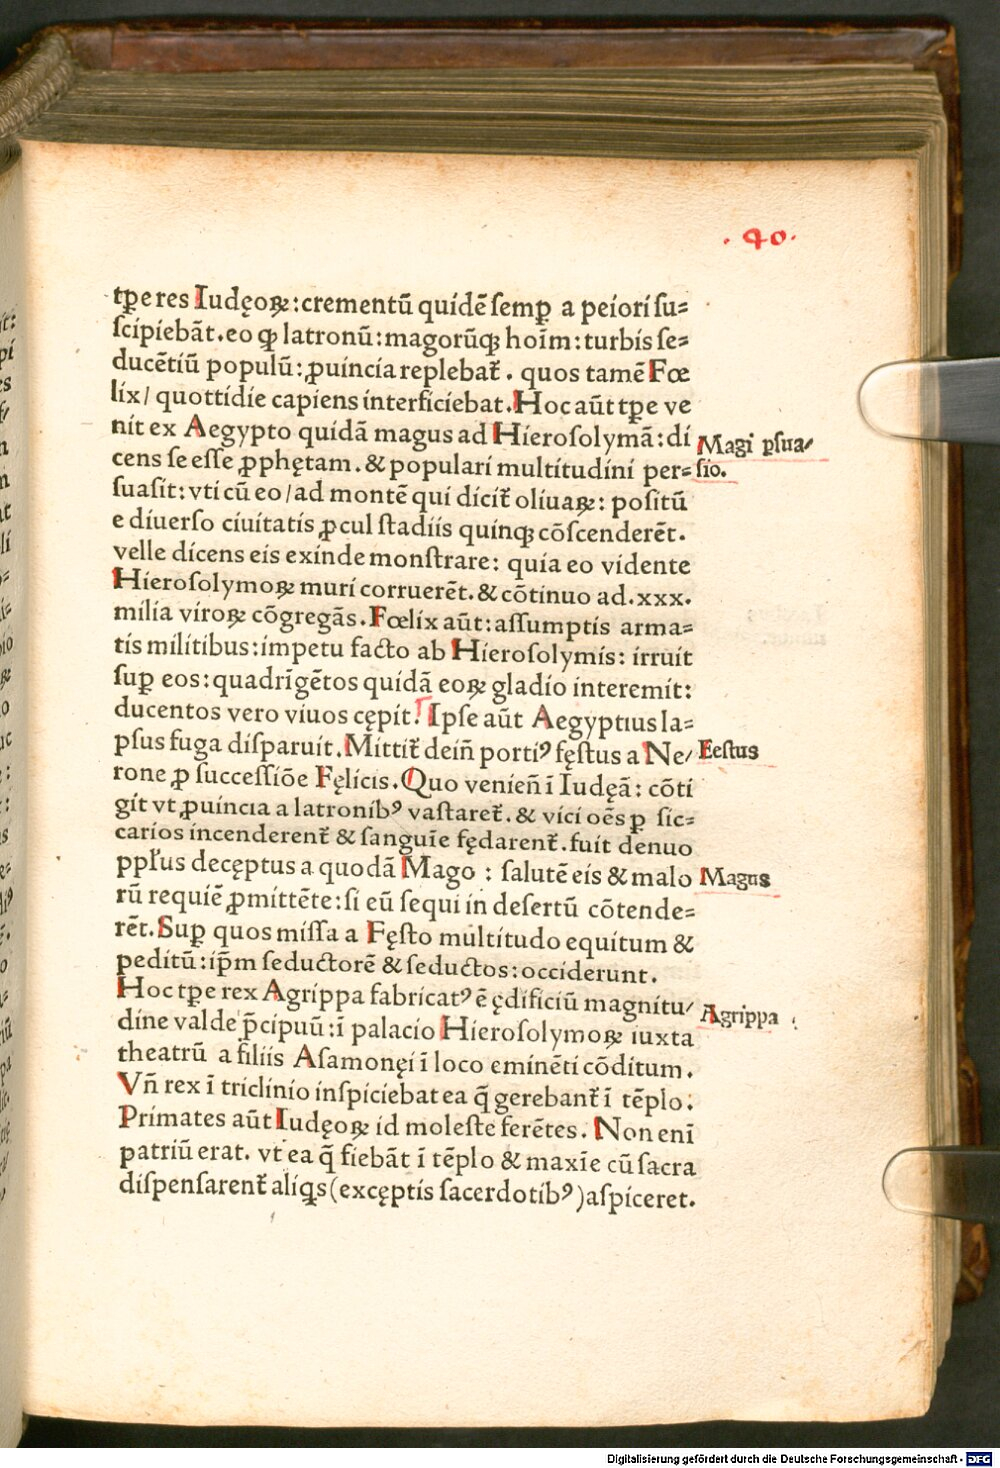 . 40 .
tꝑe res Iudęoꝝ: crementū quidē semꝑ a peiori su=
scipiebāt. eo ꝙ latronū: magorūqꝫ hoīm: turbis se=
ducētiū populū: ꝓuincia replebat̄. quos tamē Fœ
lix/ quottidie capiens interficiebat. Hoc aūt tꝑe ve
nit ex Aegypto quidā magus ad Hierosolymā: di
Magi ꝑsua/
cens se esse ꝓphętam. & populari multitudini per=
sio.
suasit: vti cū eo/ ad montē qui dicit̄ oliuaꝝ: positū
e diuerso ciuitatis ꝓcul stadiis quinqꝫ cōscenderēt.
velle dicens eis exinde monstrare: quia eo vidente
Hierosolymoꝝ muri corruerēt. & cōtinuo ad .xxx.
milia viroꝝ cōgregās. Fœlix aūt: assumptis arma=
tis militibus: impetu facto ab Hierosolymis: irruit
suꝑ eos: quadrīgētos quidā eoꝝ gladio interemit:
ducentos vero viuos cępit. Ipse aūt Aegyptius la=
psus fuga disparuit. Mittit̄ dein̄ portiꝰ fęstus a Ne/
Festus
rone ꝓ successiōe Fęlicis. Quo venien̄ ī Iudęā: cōti
git vt ꝓuincia a latronibꝰ vastaret̄. & vici oēs ꝑ sic=
carios incenderent̄ & sanguīe fędarent̄. fuit denuo
ppłus decęptus a quodā Mago: salutē eis & malo
Magus
rū requiē ꝓmittēte: si eū sequi in desertū cōtende=
rēt. Suꝑ quos missa a Fęsto multitudo equitum &
peditū: ip̄m seductorē & seductos: occiderunt.
Hoc tꝑe rex Agrippa fabricatꝰ ē ędificiū magnitu/
Agrippa
dine valde p̄cipuū: ī palacio Hierosolymoꝝ iuxta
theatrū a filiis Asamonęi ī loco eminēti cōditum.
Vn̄ rex ī triclinio inspiciebat ea q̄ gerebant̄ ī tēplo.
Primates aūt Iudęoꝝ id moleste ferētes. Non enī
patriū erat. vt ea q̄ fiebāt ī tēplo & maxīe cū sacra
dispensarent̄ aliꝗs (excęptis sacerdotibꝰ) aspiceret.
Digitalisierung gefördert durch die Deutsche Forschungsgemeinschaft - DFG